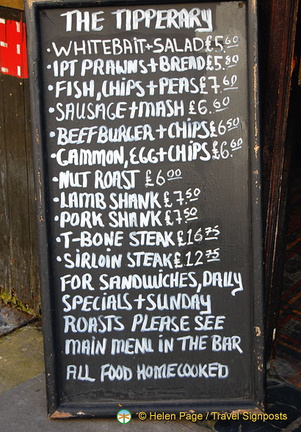 THE TIPPERARY
·WHITEBAIT+SALAD £5.60
·1PT PRAWNS+BREAD £5.80
·FISH, CHIPS+PEAS £7.60
·SAUSAGE+MASH £6.60
·BEEFBURGER+CHIPS £6.50
·GAMMON, EGG+CHIPS £6.60
·NUT ROAST £6.00
·LAMB SHANK £7.50
·PORK SHANK £7.50
·T-BONE STEAK £16.75
·SIRLOIN STEAK £12.75
FOR SANDWICHES, DAILY
SPECIALS+SUNDAY
ROASTS PLEASE SEE
MAIN MENU IN THE BAR
ALL FOOD HOMECOOKED
© Helen Page / Travel Signposts